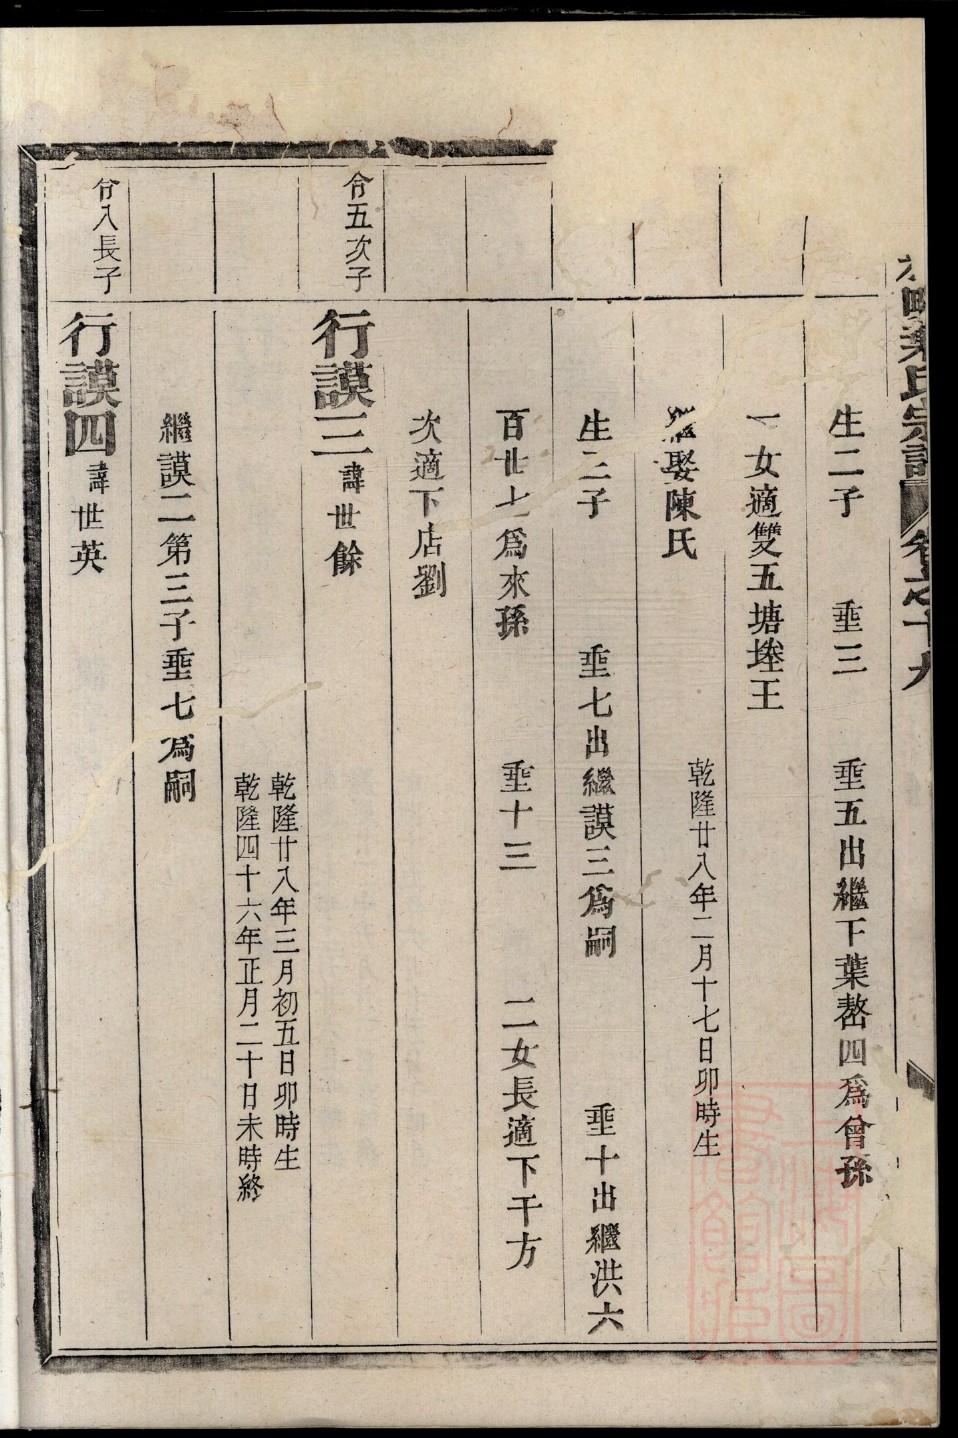 氏宗譜 卷之十九
生二子 垂三 垂五出繼下葉嶅四爲曾孫
一女適雙五塘塦王
繼娶陳氏 乾隆廿八年二月十七日卯時生
生三子 垂七出繼謨三爲嗣 垂十出繼洪六
百廿七爲來孫 垂十三 二女長適下千方
次適下店劉
合五次子
行謨三 諱世餘
乾隆廿八年三月初五日卯時生
乾隆四十六年正月二十日未時終
繼謨二第三子垂七爲嗣
合八長子
行謨四 諱世英
上海圖書館藏